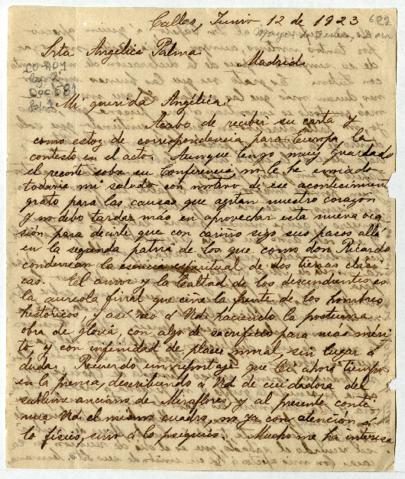 Callao, Junio 12 de 1923
Srta Angélica Palma
Madrid
CO-R01
Doc 581
Mi querida Angélica:
Acabo de recibir su carta y
como estoy de correspondencia para Europa la
contesto en el acto. Aunque tengo muy guardado
el recorte sobre su conferencia, no le he enviado
todavía mi saludo con motivo de ese acontecimiento
grato para las causas que agitan nuestro corazón
y no debo tardar más en aprovechar esta nueva oca
sión para decirte que con cariño sigo sus pasos allá
en la segunda patria de los que como don Ricardo
condensan la esencia espiritual de dos tierras clási
cas. El amor y la lealtad de los descendientes es
la auréola final que ciñe la frente de los hombres
históricos, y así veo a Ud haciendo la postrimera
obra de gloria con algo de sacrificio para más méri
to y con infinidad de placer moral, sin lugar a
duda. Recuerdo un reportaje que leí ahora tiempo
en la prensa, describiendo a Ud de cuidadora del
sublime anciano de Miraflores y al presente conti
núa Ud el mismo cuadro, no ya con atención a
lo físico, sino a lo psíquico. Mucho me interesa